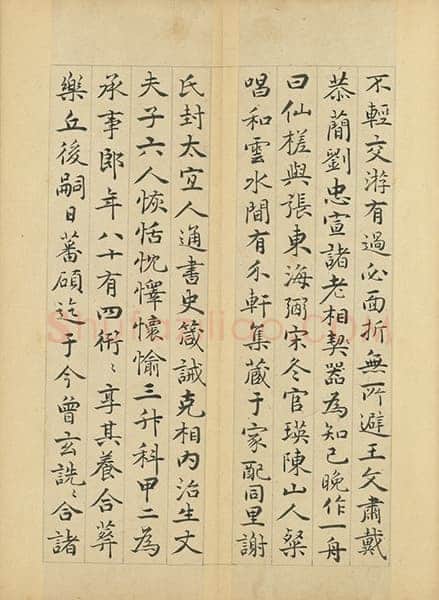 不輕交游有過必面折無所避王文肅戴
恭簡劉忠宣諸老相契器為知己晚作一舟
曰仙槎與張東海弼宋冬官瑛陳山人粲
唱和雲水間有介軒集藏于家配同里謝
氏封太宜人通書史箴誡克相內治生丈
夫子六人恢恬忱懌懷愉三升科甲二為
承事郎年八十有四衎〻享其養合葬
樂丘後嗣日蕃碩迄于今曾玄詵〻合諸